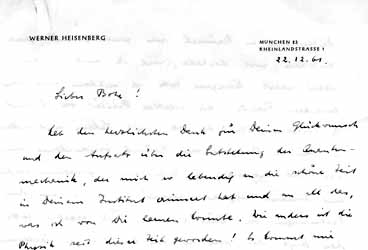 WERNER HEISENBERG
MÜNCHEN 23
RHEINLANDSTRASSE 1
22.12.61.
Lieber Born!
hab den herzlichsten Dank für Deinen Glückwunsch
und den Aufsatz über die Entstehung der Quanten-
mechanik, der mich so lebendig an die schöne Zeit
in Deinem Institut erinnert hat und an all das,
was ich von Dir lernen konnte. Wie anders ist die
Physik seit dieser Zeit geworden! Es kommt mir